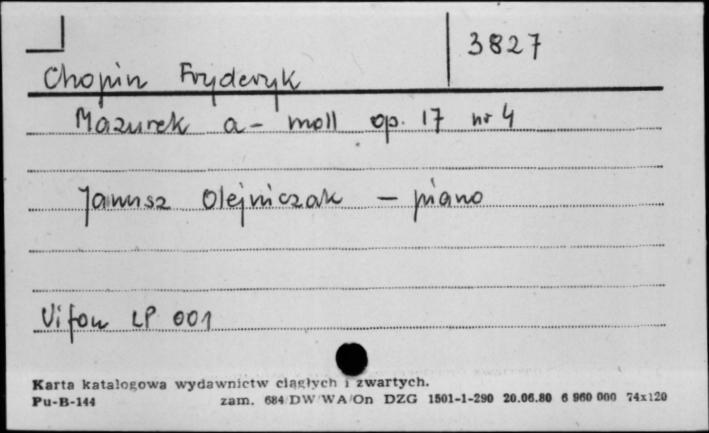 3827
Chopin Fryderyk
Mazurek a-moll op. 17 nr 4
Janusz Olejniczak - piano
Vifon LP 001
Karta katalogowa wydawnictw ciągłych i zwartych.
Pu-B-144 zam. 684/DW/WA/On DZG 1501-1-290 20.06.80 6 960 000 74x120